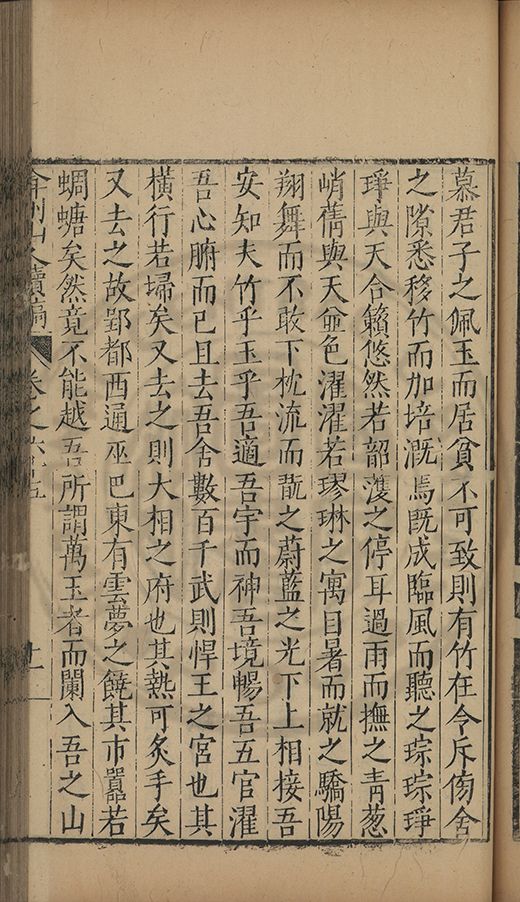 慕君子之佩玉而居貧不可致則有竹在今斥傍舍
之隙悉移竹而加培溉焉既成臨風而聽之琮琮琤
琤與天合籟悠然若韶濩之停耳過雨而撫之青葱
峭蒨與天並色濯濯若璆琳之寓目暑而就之驕陽
翔舞而不敢下枕流而翫之蔚藍之光下上相接吾
安知夫竹乎玉乎吾適吾宇而神吾境暢吾五官濯
吾心腑而已且去吾舍數百千武則悍王之宮也其
橫行若埽矣又去之則大相之府也其熱可炙手矣
又去之故郢都西通巫巴東有雲夢之饒其市囂若
蜩螗矣然竟不能越吾所謂萬玉者而闌入吾之山
弇州山人續稿 卷之六十五 十一